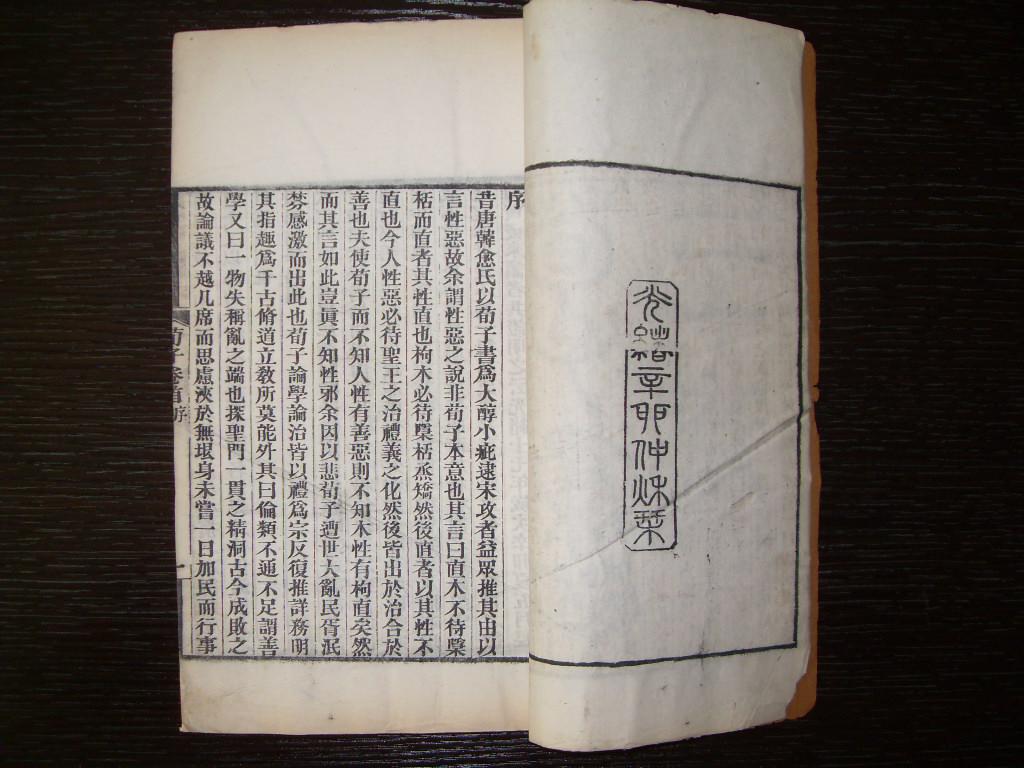 光緒辛卯仲秌栞
序
昔唐韓愈氏以荀子書爲大醇小疵逮宋攻者益眾推其由以
言性惡故余謂性惡之說非荀子本意也其言曰直木不待檃
栝而直者其性直也枸木必待檃栝烝矯然後直者以其性不
直也今人性惡必待聖王之治禮義之化然後皆出於治合於
善也夫使荀子而不知人性有善惡則不知木性有枸直矣然
而其言如此豈眞不知性邪余因以悲荀子遭世大亂民胥泯
棼感激而出此也荀子論學論治皆以禮爲宗反復推詳務明
其指趣爲千古脩道立敎所莫能外其曰倫類不通不足謂善
學又曰一物失稱亂之端也探聖門一貫之精洞古今成敗之
故論議不越几席而思慮浹於無垠身未嘗一日加民而行事
荀子卷首序
一